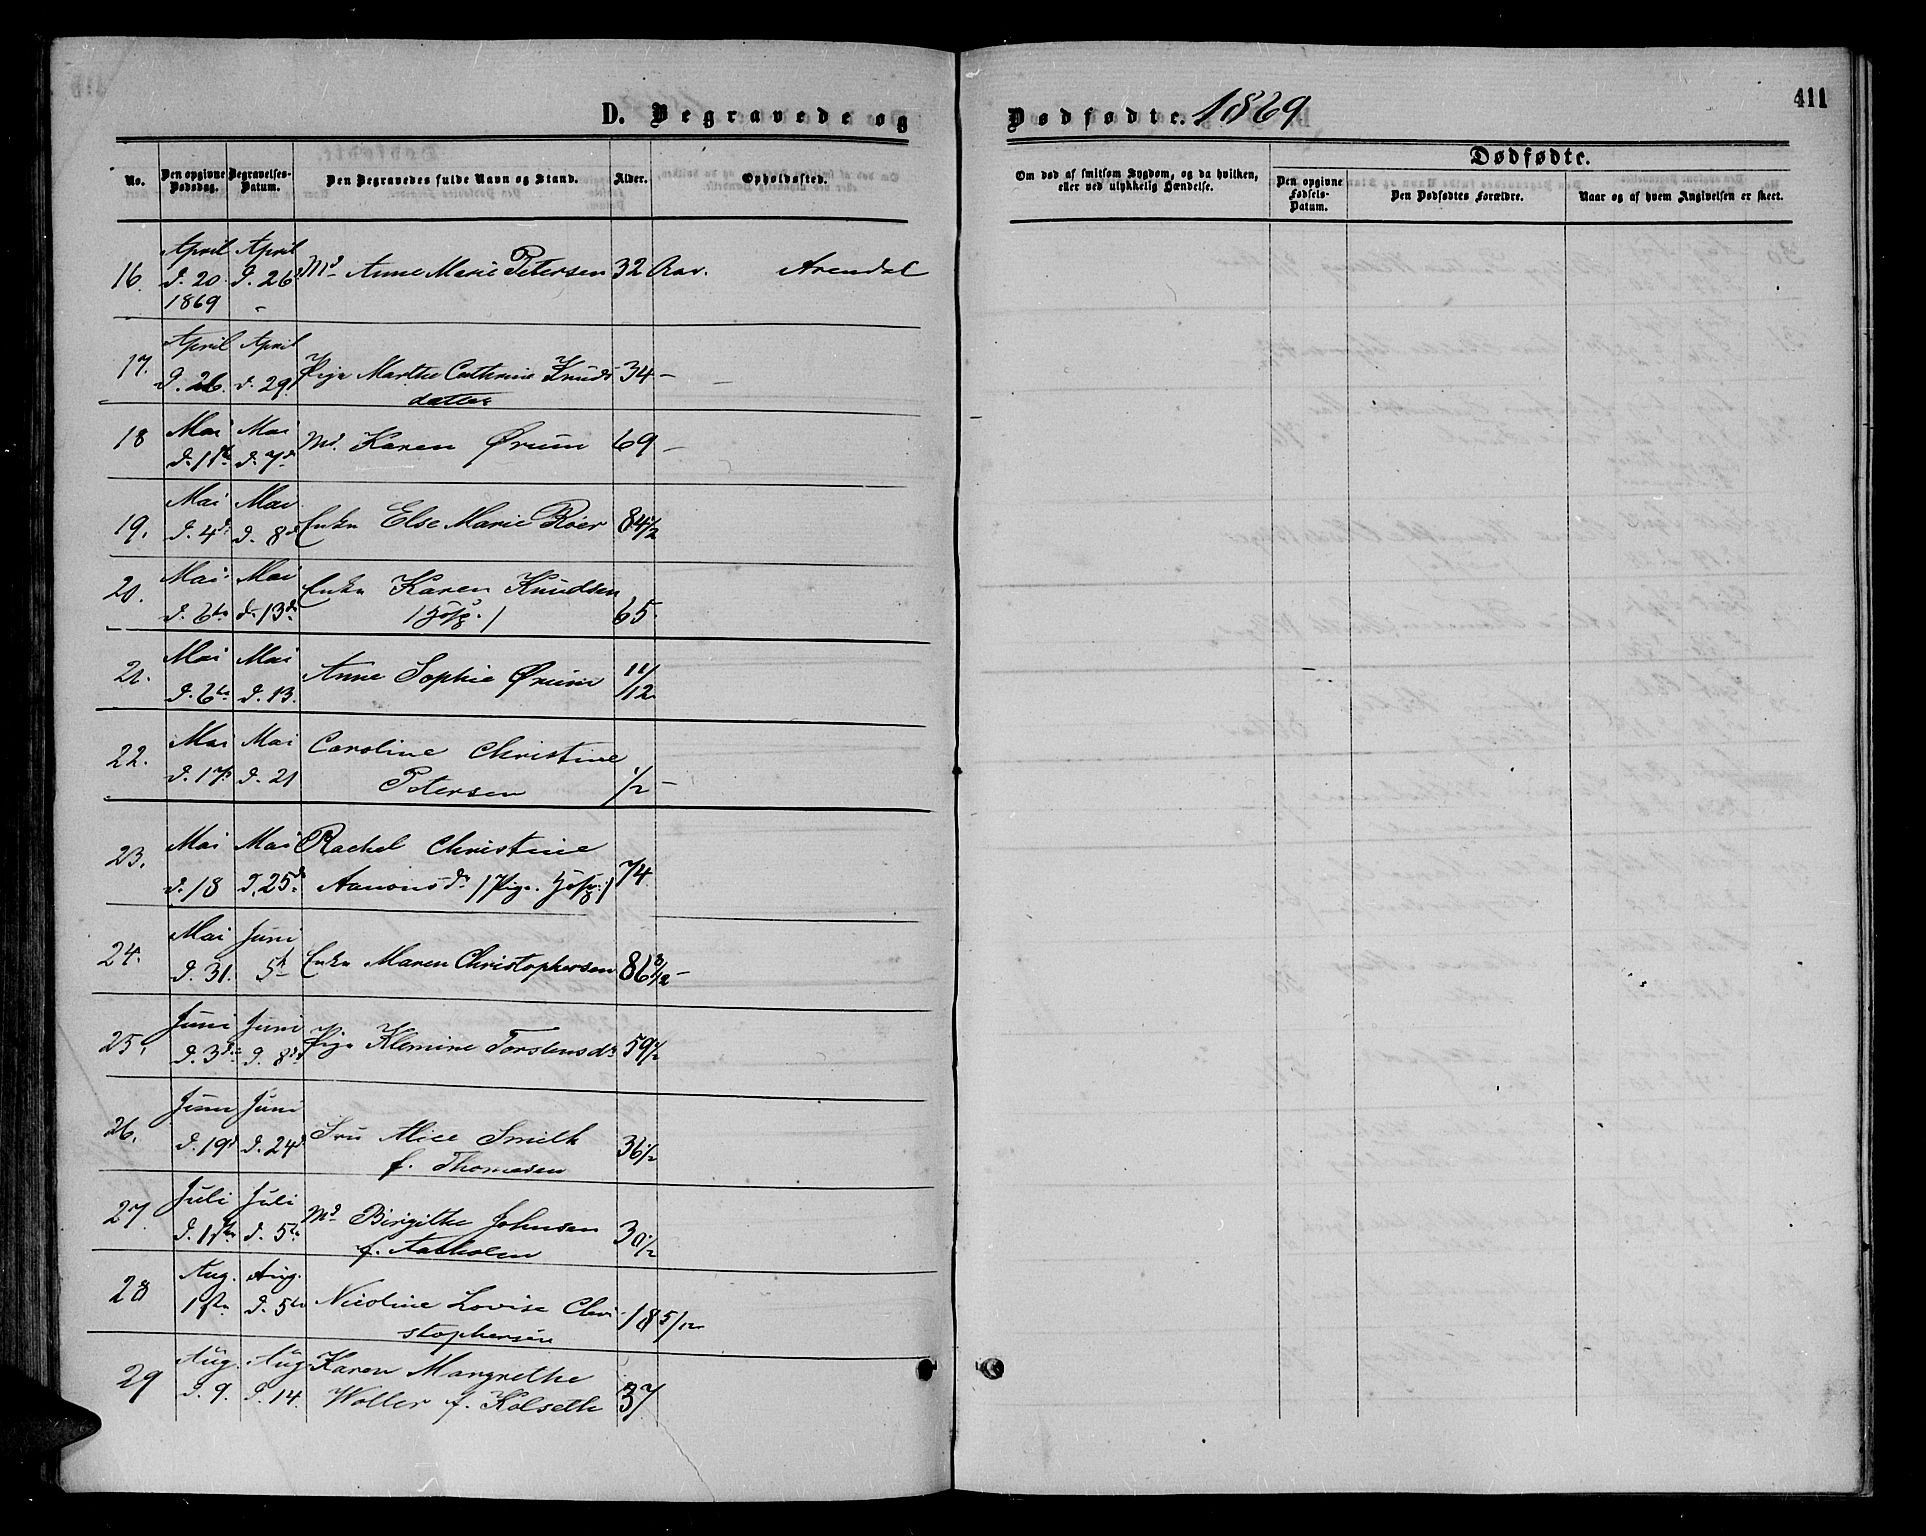 D. Begravede og
Dødfødte. 1869
411
No.
Den opgivne Dødsdag.
Begravelses-Datum.
Den Begravedes fulde Navn og Stand.
Alder.
Opholdssted.
Om død af smitsom Sygdom, og da hvilken, eller ved ulykkelig Hændelse.
Dødfødte.
Den opgivne Fødsels-Datum.
Den Dødfødtes Forældre.
Naar og af hvem Angivelsen er skeet.
16. April d. 20. 1869 April d. 26 Md. Anne Marie Petersen 32 Aar. Arendal
17. April d. 26. April d. 29. Pige Marthe Cathrine Knuds
datter 34 –
18 Mai d. 1ste Mai d. 7de Md. Karen Ørum 69 –
19. Mai d. 4de Mai d. 8de Enke Else Marie Röer 84 1/2
20. Mai d. 6te Mai d. 13de Enke Karen Knudsen 65
21. Mai d. 6te Mai d. 13. Anne Sophie Ørum 11/12
22. Mai d. 17 Mai d. 21 Caroline Christine
Petersen 1/2 –
23. Mai d. 18 Mai d. 25de Rachel Christine
Aanonsdr. /Pige. 74
24. Mai d. 31. Juni 5te Enke Maren Christophersen 86
25. Juni d. 3de Juni d. 8de Pige Klemine Torstensdr. 59 1/2
26. Juni d. 19de Juni d. 24de Fru Alice Smith
f. Thomesen 36 1/2
27. Juli d. 1ste Juli d. 5te Md. Birgithe Johnsen
f. 30 1/2
28 Aug. 1ste Aug. d. 5te Nicoline Lovise Chri
stophersen 18 5/12
29 Aug. d. 9. Aug d. 14. Karen Margrethe
Woller f. Kolseth 37